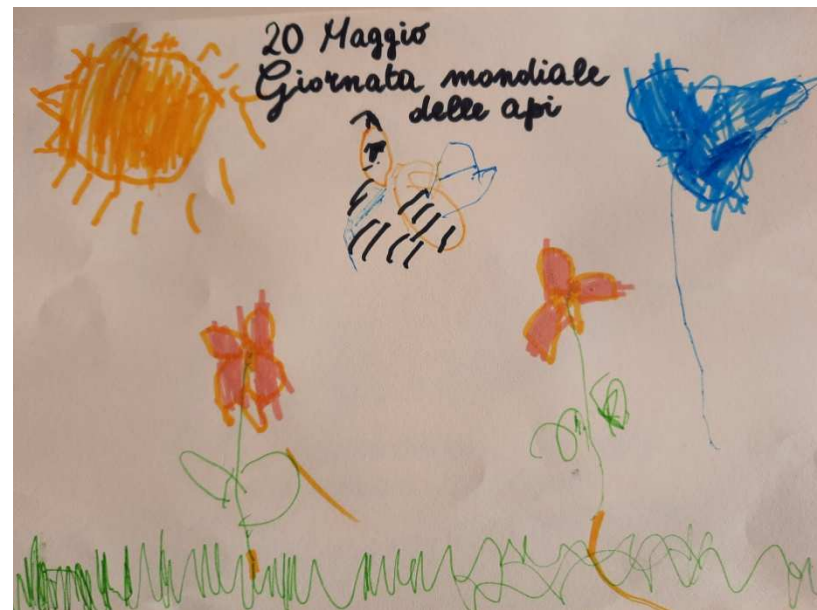 20 Maggio
Giornata mondiale
delle api